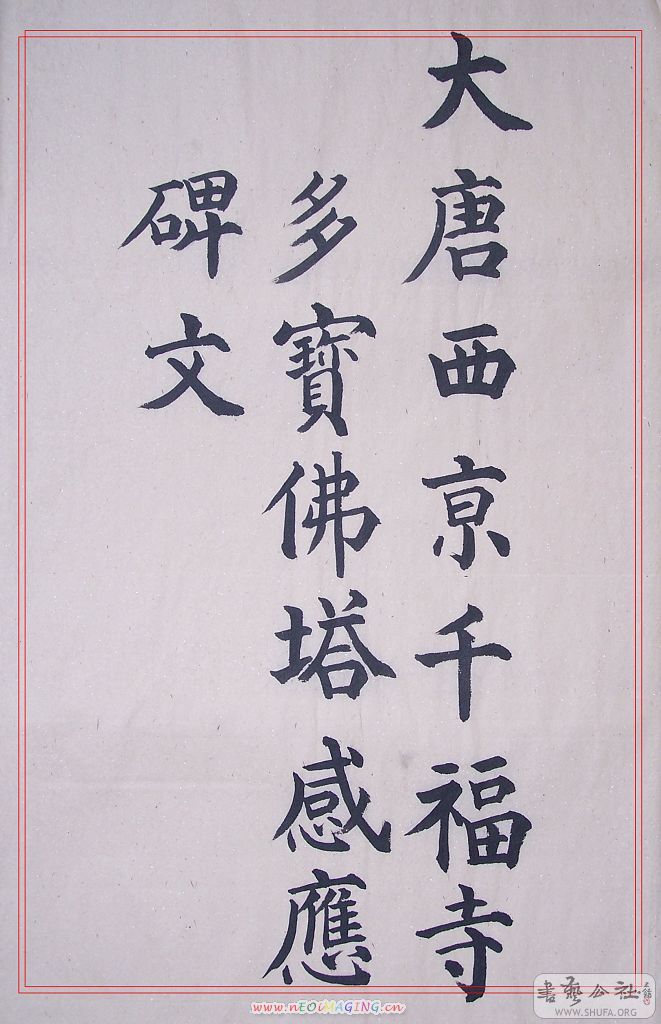 大唐西京千福寺
多寶佛塔感應
碑文
書藝公社
WWW.SHUFA.ORG
www.nEOiMAGING.cn